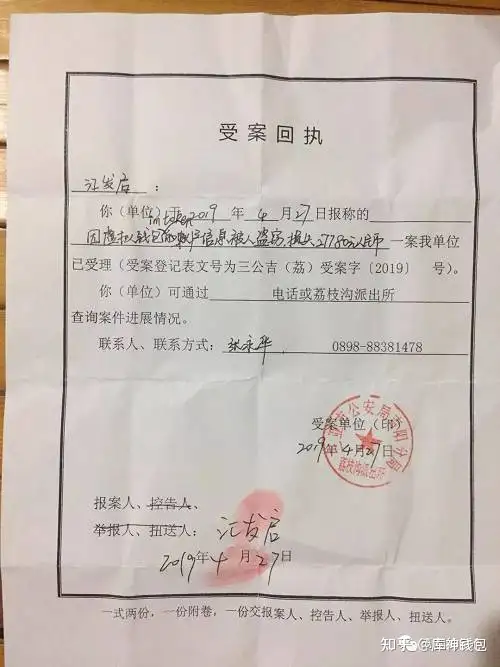 受案回执
江发启：
你（单位）于2019年4月27日报称的
imtoken
因虚拟钱包的数字信息被人盗窃，损失27780元人民币一案我单位
已受理（受案登记表文号为三公吉（荔）受案字〔2019〕 号）。
你（单位）可通过 电话或荔枝沟派出所
查询案件进展情况。
联系人、联系方式：张永华， 0898-88381478
受案单位（印）
2019年4月27日
荔枝沟派出所
报案人、控告人、
举报人、扭送人：江发启
2019年4月27日
一式两份，一份附卷，一份交报案人、控告人、举报人、扭送人。
知乎 @库神钱包